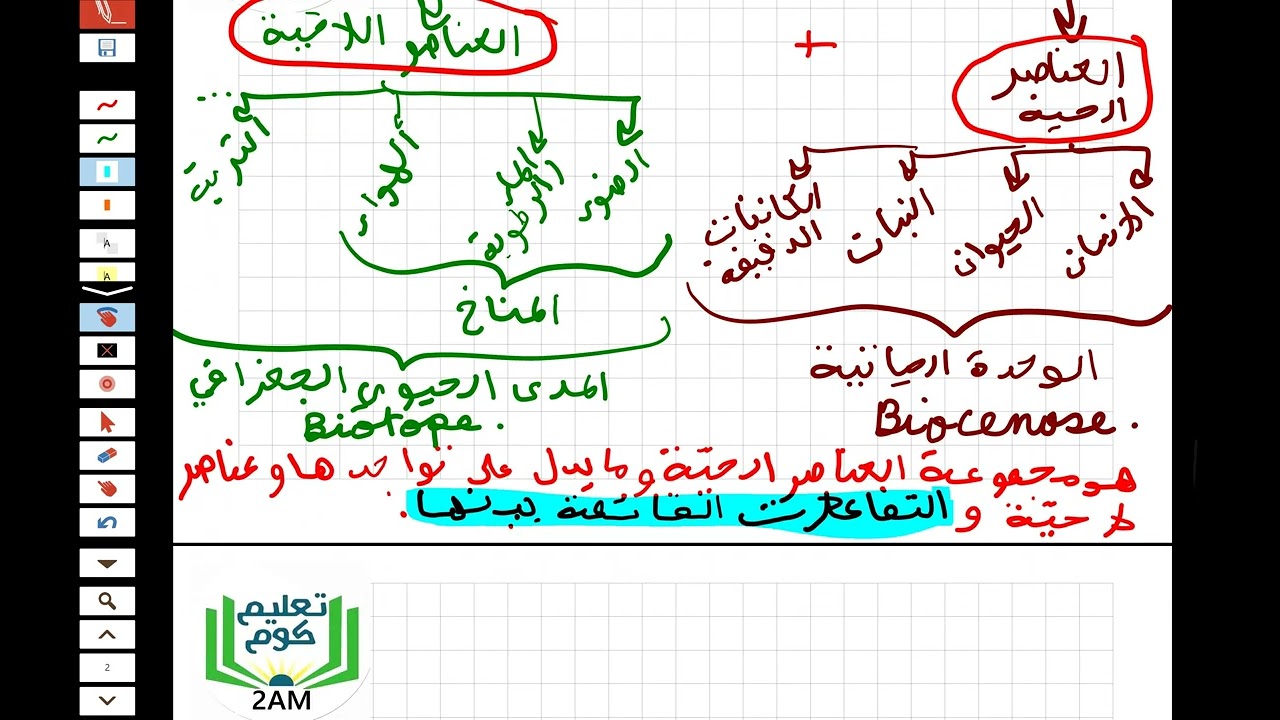 العناصر اللاحية
+
العناصر
الحية
الإنسان
الحيوان
النبات
الكائنات
الدقيقة
الضوء
الماء
والرطوبة
الهواء
التربة
...
المناخ
الوحدة الحيانية
Biocenose.
المدى الحيوي الجغرافي
Biotope.
هو مجموعة العناصر الحيّة وما يدل على تواجدها وعناصر
لا حيّة و التفاعلات القائمة بينها.
تعليم
كوم
2AM
A
A
2